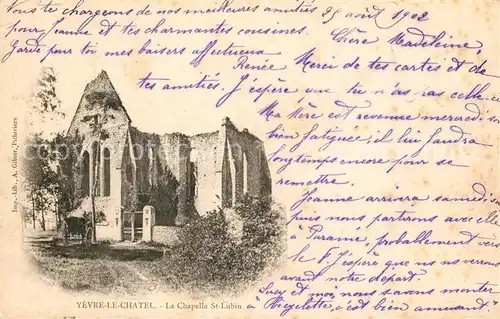 Vous te chargeons de nos meilleures amitiés 25 août 1902
pour Jeanne et tes charmantes cousines.
Garde pour toi mes baisers affectueux
Renée
Chère Madeleine,
Merci de tes cartes et de
tes amitiés. J'espère que tu n'as ras celle-ci
Ma mère est revenue mercredi soir
bien fatiguée, il lui faudra
longtemps encore pour se
remettre.
Jeanne arrivera samedi
puis nous partirons avec elle
à Paramé, probablement vers
le 5. J'espère que nous verrons
avant notre départ.
Lucy et moi, nous savons monter
à bicyclette, c'est bien amusant.
Imp. Lib., A. Gibier, Pithiviers
YÈVRE-LE-CHATEL. - La Chapelle St-Lubin